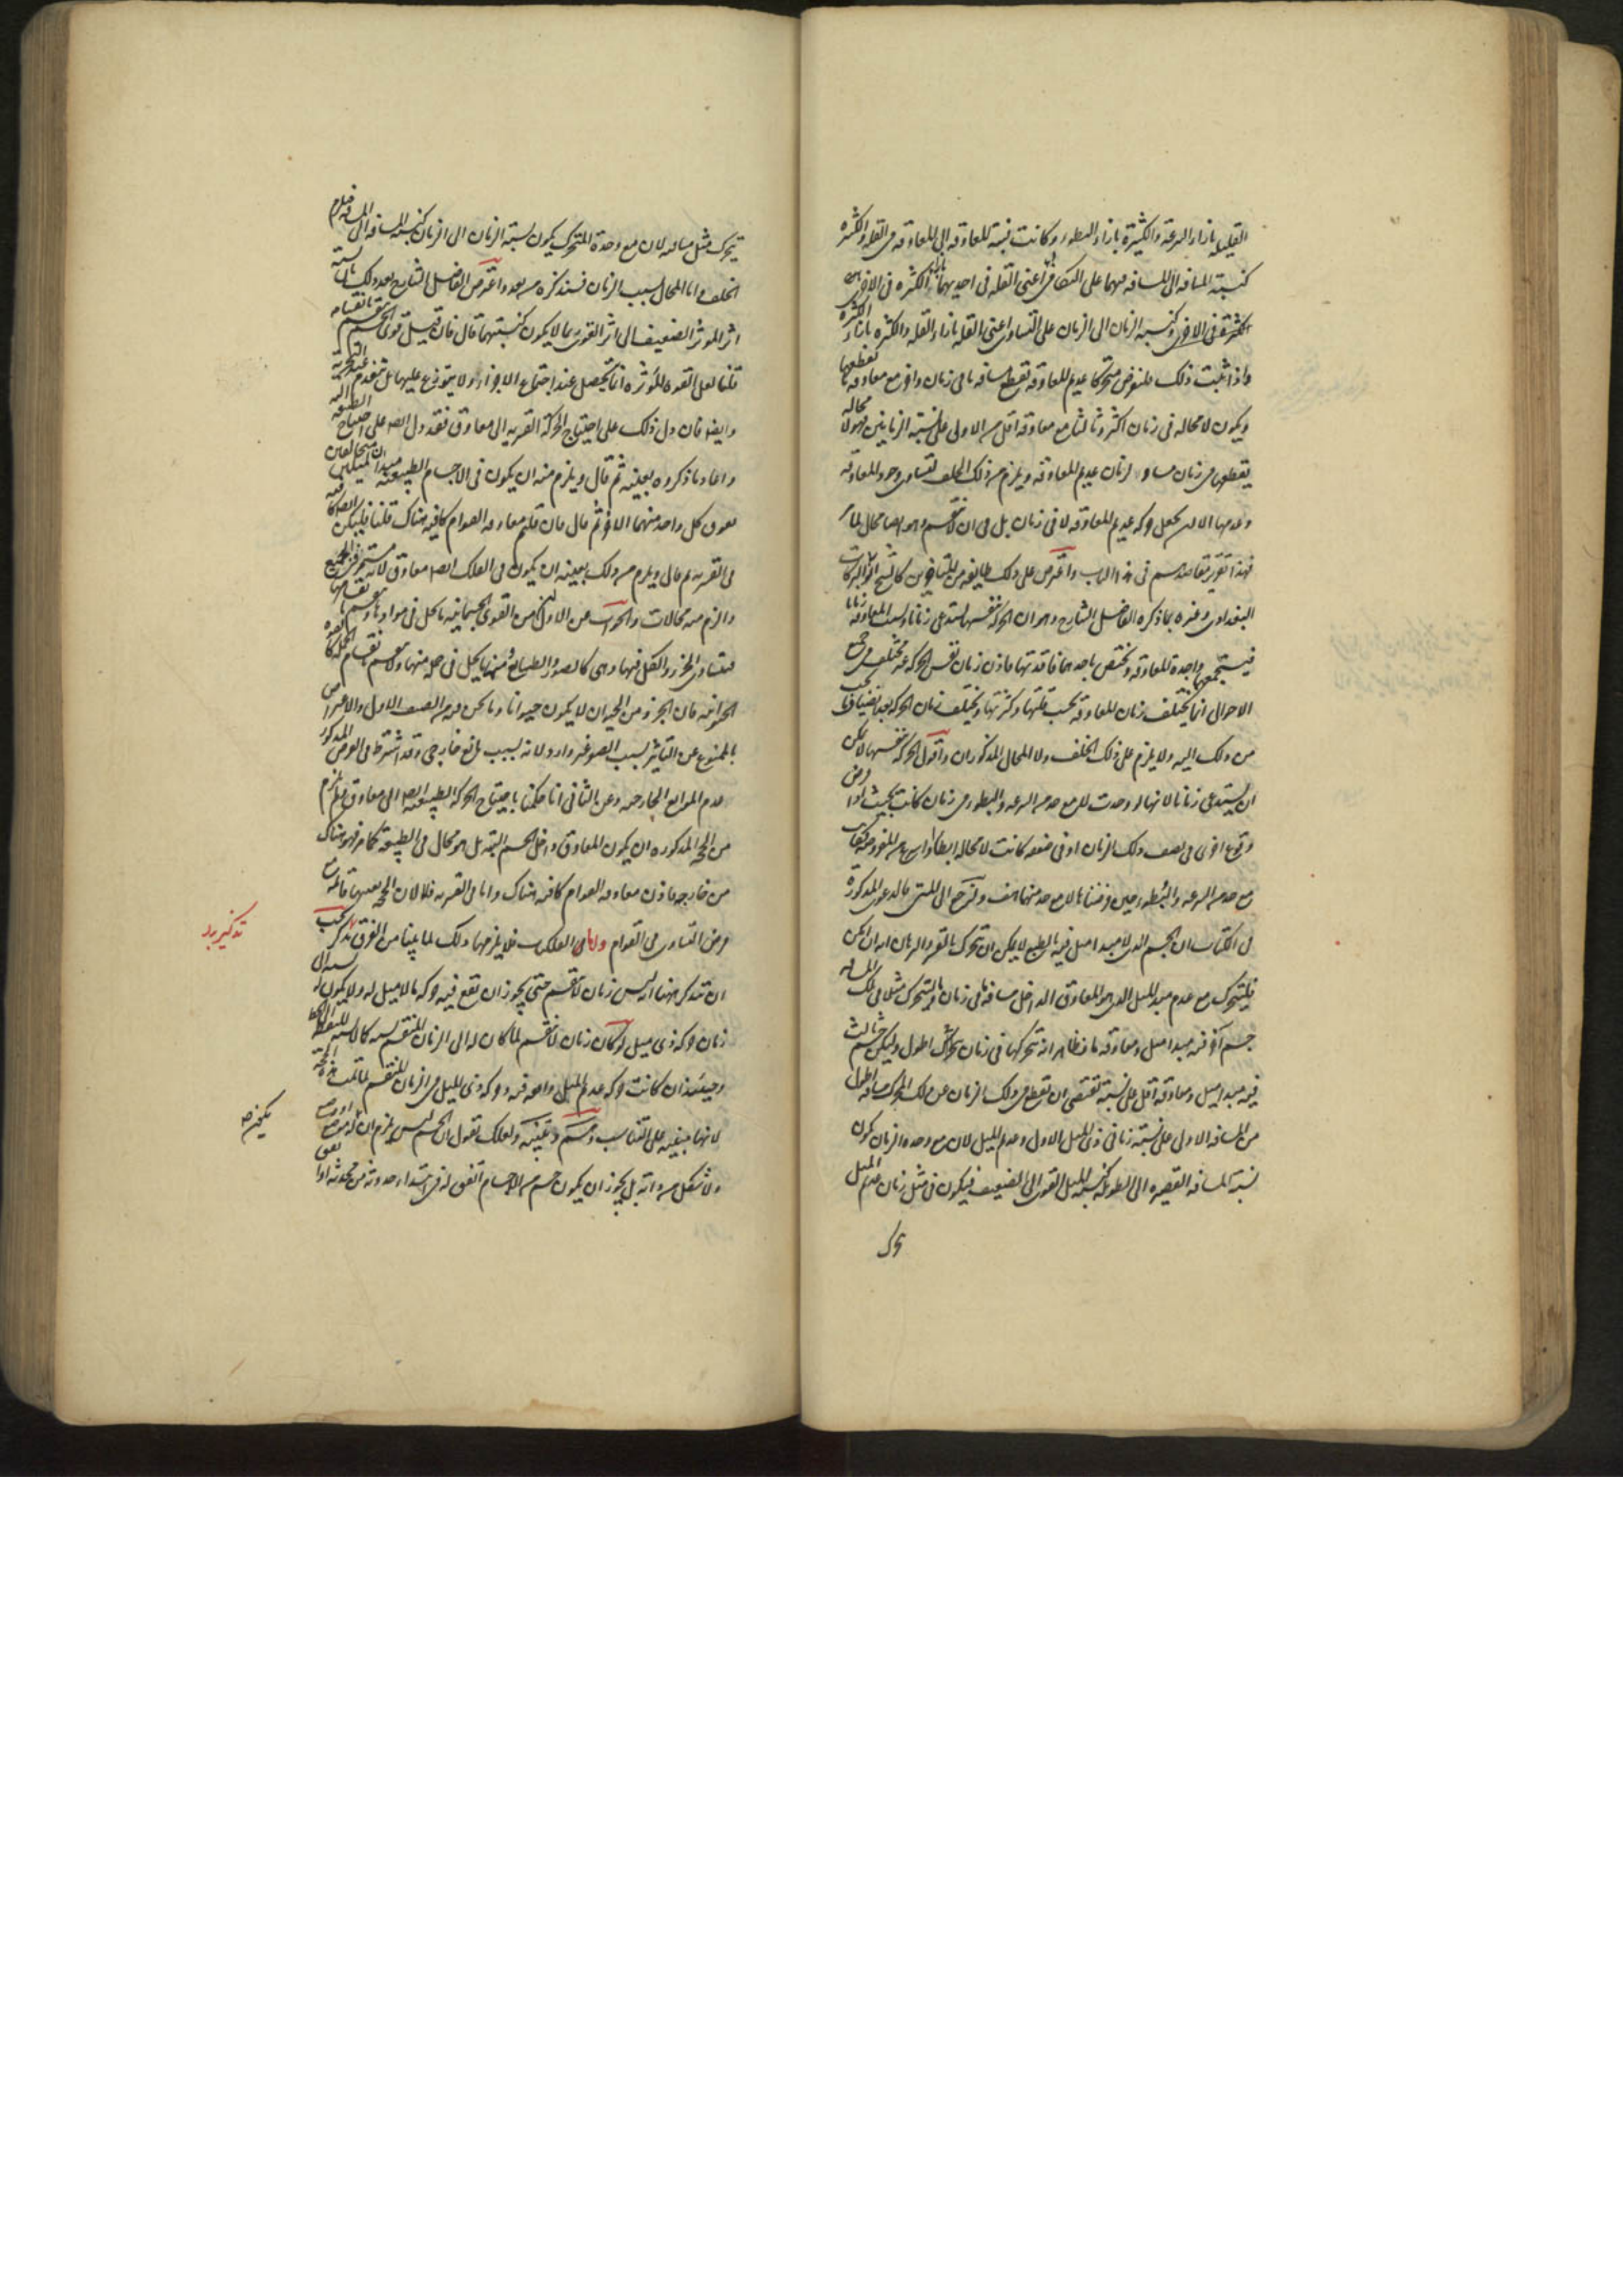 القليله بازاء السرعة والكثيرة بازاء البطوء وكانت نسبة المعاوقه الى المعاوقه فى القله والكثره
كنسبة المسافه الى المسافه فيهما على التكافى اعنى القله فى احديهما بازاء الكثره فى الاخرى
وكنسبه الزمان الى الزمان على التساوى اعنى القله بازاء القله والكثره بازاء الكثره
واذا ثبت ذلك فلنفرض متحركا عديم المعاوقه يقطع مسافه ما فى زمان واخر مع معاوقه ما يقطعها
ويكون لا محاله فى زمان اكثر وثالثا مع معاوقه اقل من الاولى على نسبة الزمانين فهو لا محاله
يقطعها فى زمان مساو لزمان عديم المعاوقه ويلزم من ذلك الخلف لتساوى وجود المعاوقه
وعدمها الا ان يجعل حركه عديم المعاوقه لا فى زمان بل فى ان لا ينقسم وهو ايضا محال لما مر
فهذا تقرير مقاصدهم فى هذا الباب واعترض على ذلك طايفه من المتاخرين كالشيخ ابو البركات
البغدادى وغيره بما ذكره الفاضل الشارح وهو ان الحركه بنفسها تستدعى زمانا وبسبب المعاوقه زمانا
فيستجمعهما واجدة المعاوقه ويختص باحدهما فاقدتها فاذن زمان نفس الحركه غير مختلف فى جميع
الاحوال انما يختلف زمان المعاوقه بحسب قلتها وكثرتها ويختلف زمان الحركه بعد انضياف ما يجب
من ذلك اليه ولا يلزم على ذلك الخلف ولا المحال المذكوران واقول الحركه بنفسها لا يمكن
ان تستدعى زمانا لانها لو وجدت لا مع حد من السرعه والبطوء فى زمان كانت بحيث اذا فرض
وقوع اخرى فى نصف ذلك الزمان او فى ضعفه كانت لا محاله ابطا او اسرع من المفروضه فكانت
مع حد من السرعه والبطوء حين فرضناها لا مع حد منهما هف ولنرجع الى المتن فالدعوى المذكورة
فى الكتاب ان الجسم الذى لا مبدا ميل فيه بالطبع لا يمكن ان يتحرك بالقسر والبرهان انه ان امكن
فليتحرك مع عدم مبدا الميل الذى هو المعاوق الداخل مسافة ما فى زمان وليتحرك مثلا فى تلك المسافه
جسم آخر فيه مبدا ميل ومعاوقه ما فظاهر انه يتحركها فى زمان اطول وليكن جسم ثالث
فيه مبدا ميل ومعاوقه اقل على نسبة تقتضى ان يقطع فى ذلك الزمان عن ذلك المحرك مسافه اطول
من المسافه الاولى على نسبة زمانى ذى الميل الاول وعديم الميل لان مع وحده الزمان تكون
نسبة المسافه القصيره الى الطويله كنسبه الميل القوى الى الضعيف فيكون فى مثل زمان عديم الميل
تحرك
يتحرك مثل مسافته لان مع وحدة المتحرك يكون نسبة الزمان الى الزمان كنسبه المسافه الى المسافه فيلزم
الخلف واما المحال بسبب الزمان فسنذكره من بعد واعترض الفاضل الشارح بعد ذلك بان نسبة
اثر الموثر الضعيف الى اثر القوى بما لا يكون كنسبتهما قال فان قيل قوى الجسم تنقسم بانقسامه
قلنا لعل القوه الموثره انما تحصل عند اجتماع الاجزاء ولا يتوزع عليها بل تنعدم عند التجزية
وايضا فان دل ذلك على احتياج الحركة القسريه الى معاوق فقد دل ايضا على احتياج الطبيعيه اليه
واعاد ما ذكروه بعينه ثم قال ويلزم منه ان يكون فى الاجسام الطبيعيه مبدا ميلين متخالفين
يعوق كل واحد منهما الاخر ثم قال فان قلتم معاوقه القوام كافيه هناك قلنا فليكن ايضا كافيه
فى القسريه ثم قال ويلزم من ذلك بعينه ان يكون فى الفلك ايضا معاوق
والزم منه محالات والجواب عن الاول ان من القوى الجسمانيه ما يحل فى موادها وينقسم بانقسامها
فيتساوى الجزء والكل فيها وهى كالصور والطبايع ومنها ما يحل فى جملة منها ولا ينقسم بانقسام الجملة كالقوه
الحيوانيه فان الجزء من الحيوان لا يكون حيوانا وما نحن فيه من الصنف الاول والاعتراض
بالممنوع عن التاثير بسبب الصغر غير وارد لانه بسبب مانع خارجى وقد اشترط فى الفرض المذكور
عدم الموانع الخارجيه وعن الثانى انا حكمنا باحتياج الحركه الطبيعيه ايضا الى معاوق فيلزم
من الحجه المذكوره ان يكون المعاوق داخل الجسم البته بل هو محال فى الطبيعية كما مر فهو هناك
من خارج فاذن معاوقه القوام كافيه هناك واما فى القسريه فلا لان الحجه بعينها قائمه مع
فرض التساوى فى القوام واما فى الفلك فلا يلزمها ذلك لما بينا من الفرق تذكير يجب
ان تتذكر ههنا انه ليس زمان لا ينقسم حتى يجوز ان تقع فيه حركه ما لا ميل له ولا يكون له نسبه الى
زمان حركه ذى ميل لو كان زمان لا ينقسم لما كان له الى الزمان المنقسم نسبه كما لا نسبه للنقطه الى الخط
وحينئذ ان كانت حركه عديم الميل واقعه فيه وحركه ذى الميل فى الزمان المنقسم لما تمت هذه الحجة
لانها مبنيه على التناسب وهم وتنبيه ولعلك تقول ان الجسم ليس يلزم ان يكون له موضع او وضع
ولا شكل من ذاته بل يجوز ان يكون جسم من الاجسام اتفق له فى ابتداء حدوثه من محدثه او اتفق
تذكير بد